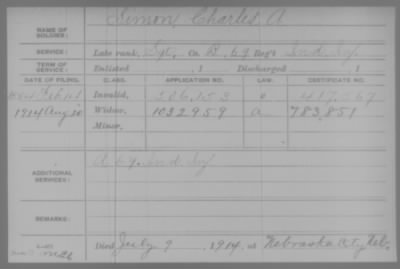 Simon, Charles A.
NAME OF SOLDIER:
SERVICE: Late rank, Sgt, Co. B, 69 Reg't Ind. Inf.
TERM OF SERVICE: Enlisted , 1 Discharged , 1
DATE OF FILING. CLASS. APPLICATION NO. LAW. CERTIFICATE NO.
Feb Invalid, 506,153 417,567
1914 Aug 20 Widow, 1032959 783,851
Minor,
ADDITIONAL SERVICES: Ind. Inf
REMARKS:
Died July 9, 1914, at Nebraska City Neb.